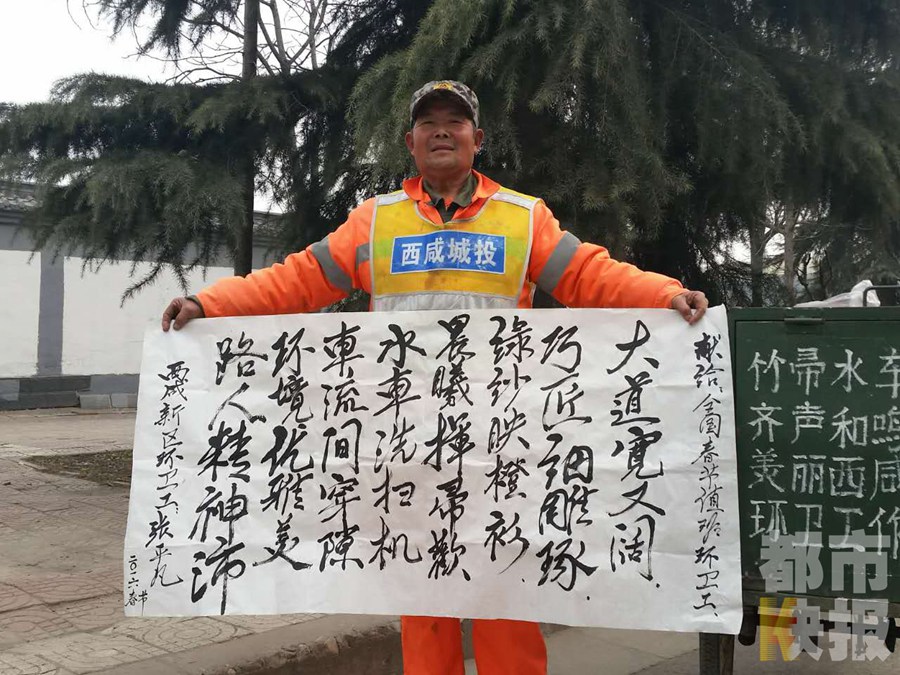 西咸城投
献给全国春节值班环卫工
大道宽又阔
巧匠细雕琢
绿纱映橙衫
晨曦挥帚歡
水車洗扫机
車流间穿隙
环境优雅美
路人精神沛
西咸新区环卫工张平凡
二〇一六春节
车水帚竹
鸣和声齐
咸西丽美
作工卫环
都市
快报